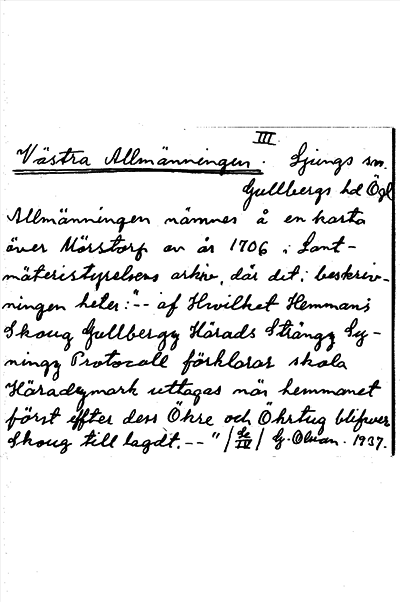 III
Västra Allmänningen. Ljungs sn.
Gullbergs hd Ögl
Allmänningen nämnes å en karta
över Mörstorp av år 1706 i Lant-
mäteristyrelsens arkiv, där det i beskriv-
ningen heter: "-- af Hwilket Hemmans
Skoug Gullbergz Härads Sträng Sy-
ningz Protocoll förklarar skola
Häradzmark uttagas när hemmanet
först effter dess Ökre och Öhrtug blifwer
Skoug till lagdt. --" / IV / G. Olson. 1937.